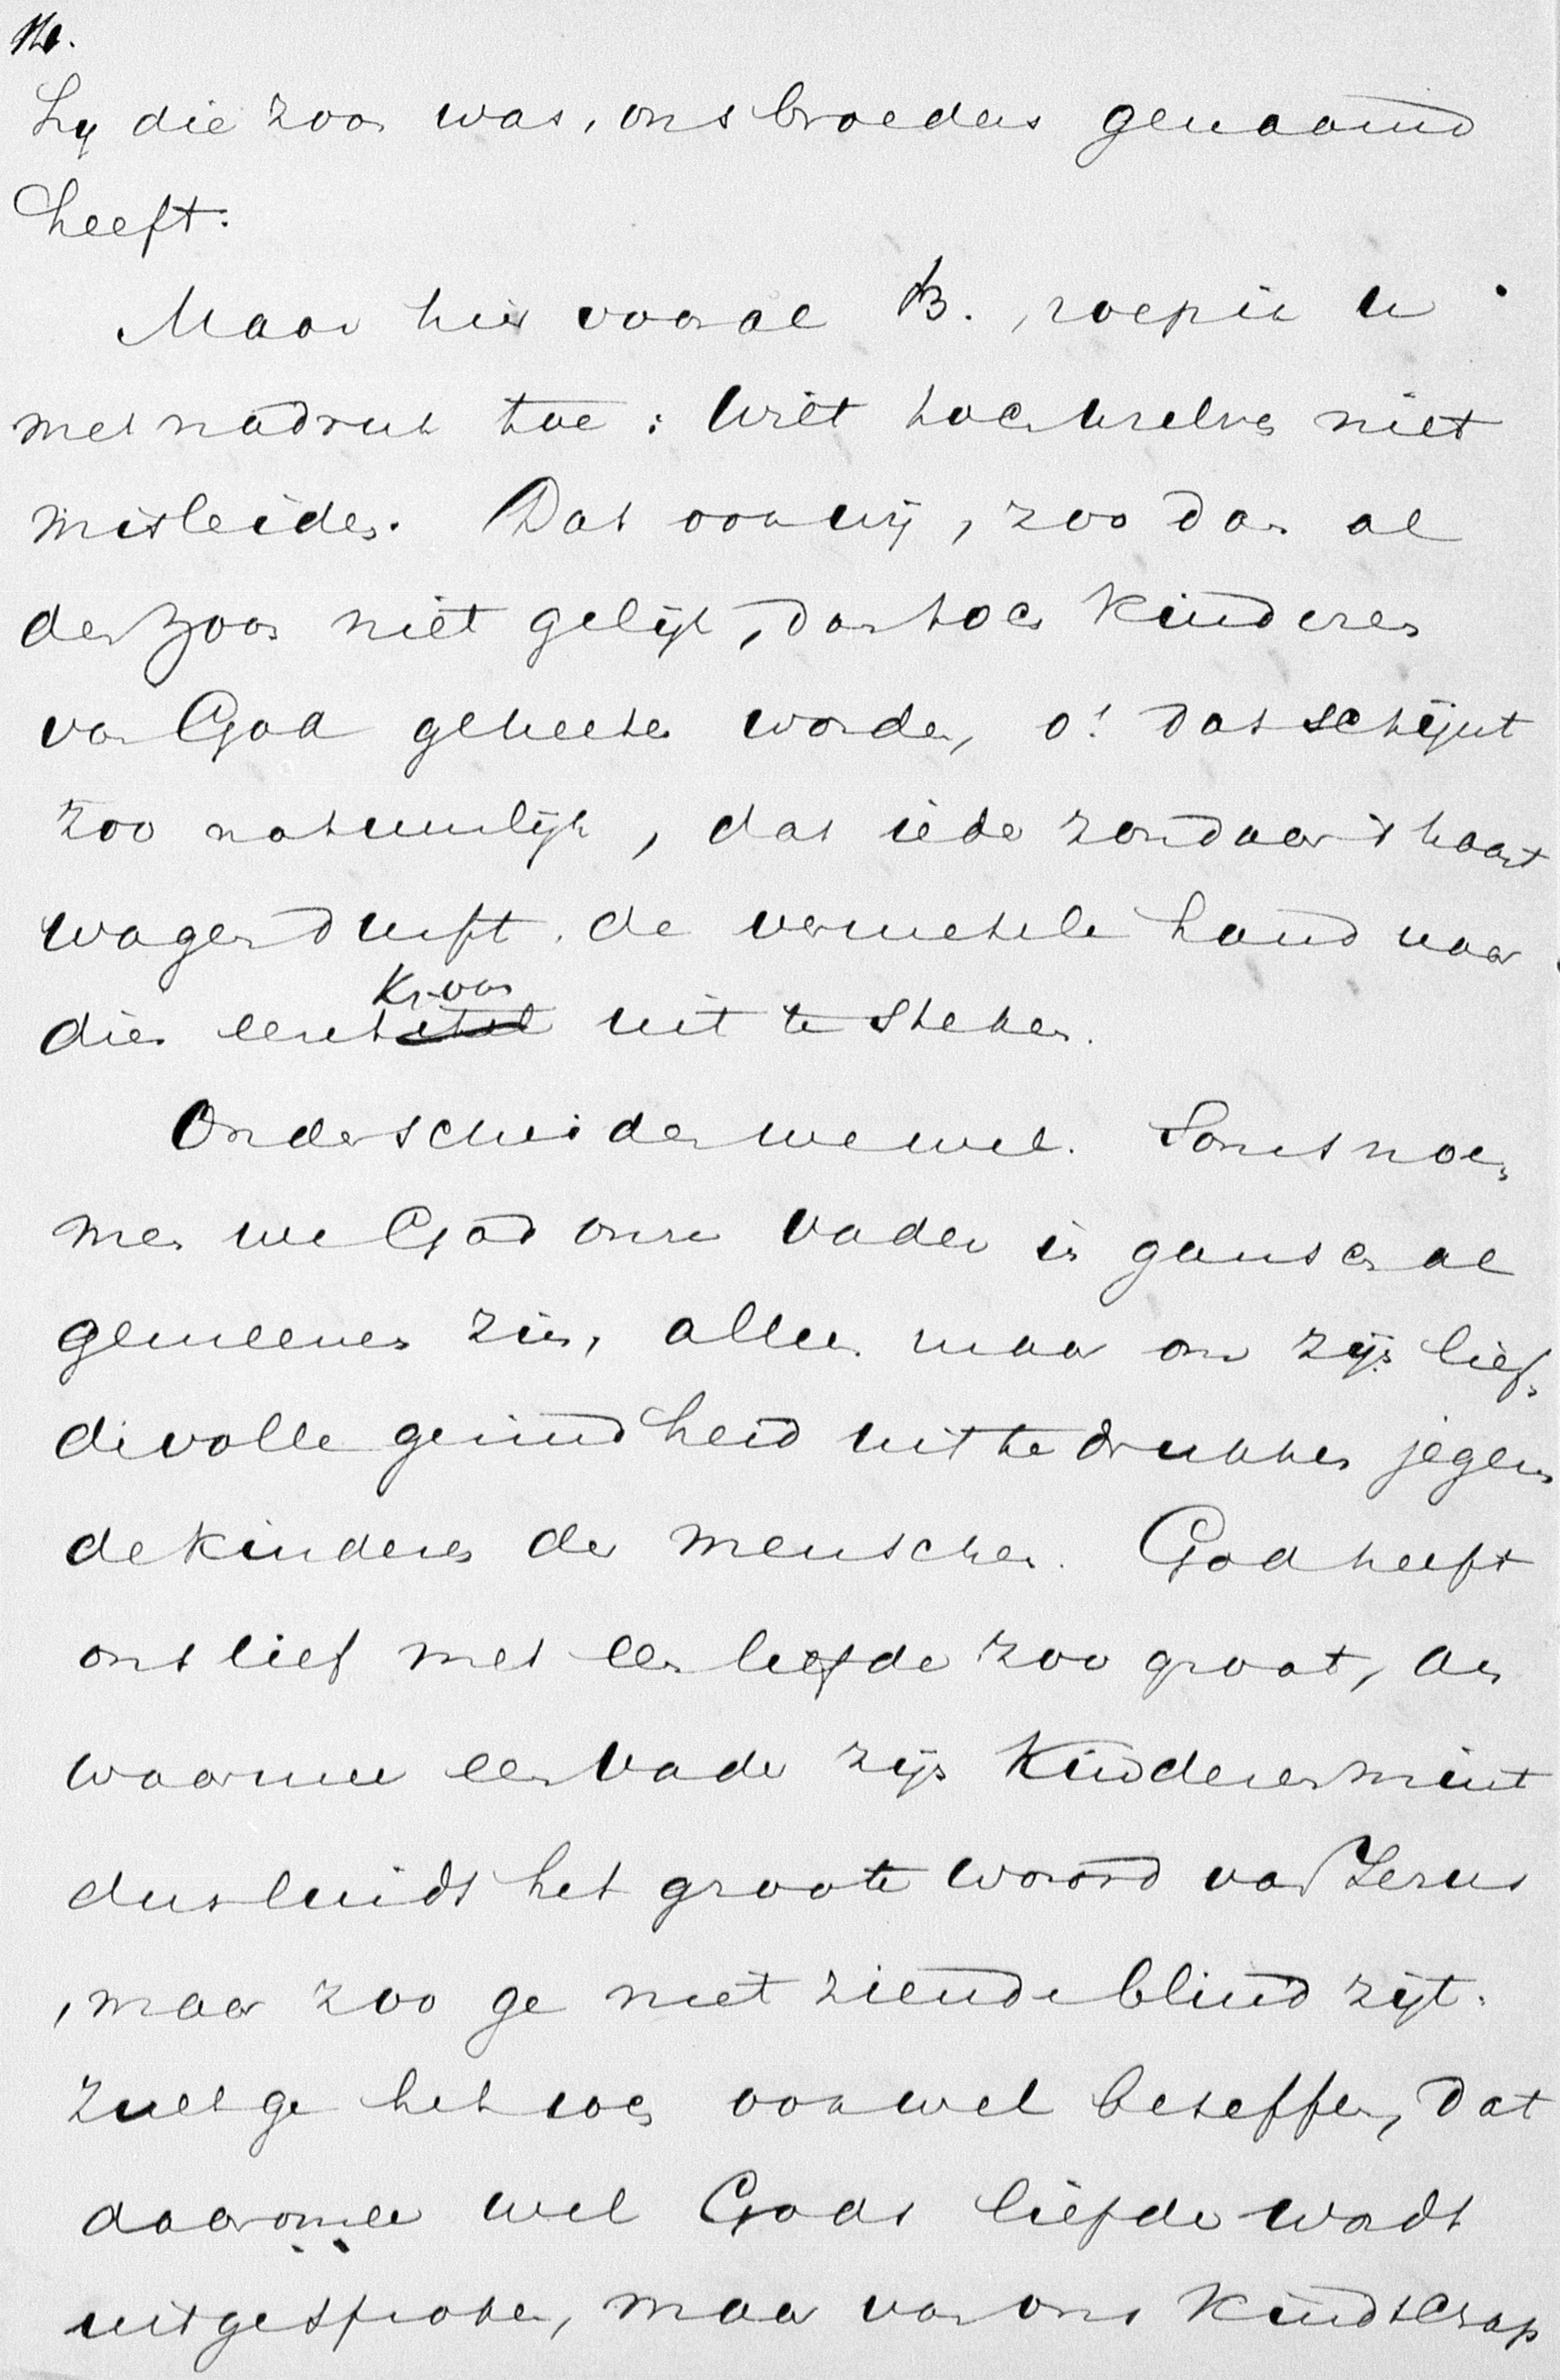 16.
hy die zoon was, ons broeders genaamd
heeft.
Maar hier vooral B., roep ik u
met nadruk toe: Wilt toch uzelven niet
misleiden. Dat ook wij, zoo dan al
den zoon niet gelijk, dan toch kinderen
van God geheeten worden, o! dat schijnt
zoo natuurlijk, dat ieder zondaar 't haast
wagen durft de vermetele hand naar
dien eerekroon uit te steken.
Onderscheiden we wel. Soms noe-
men we God onze Vader in gansch al
gemeenen zin, alleen maar om zijn lief-
devolle gezindheid uit te drukken jegens
de kinderen der menschen. God heeft
ons lief met een liefde zoo groot, als
waarmee een Vader zijn kinderen mint
dus luidt het groote woord van Jezus
, maar zoo ge niet ziende blind zijt.
zult ge het toch ook wel beseffen, dat
daarmee wel Gods liefde wordt
uitgesproken, maar van ons kindschap